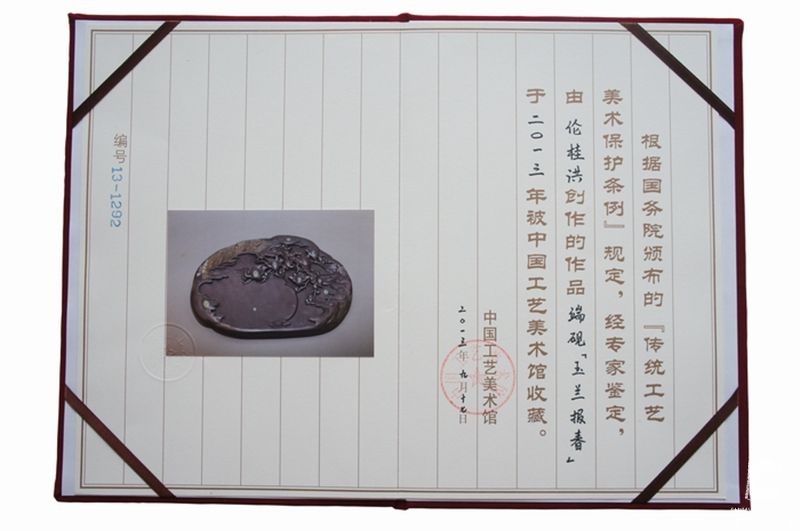 根据国务院颁布的『传统工艺
美术保护条例』规定，经专家鉴定，
由伦桂洪创作的作品端砚「玉兰报春」
于二〇一三年被中国工艺美术馆收藏。
中国工艺美术馆
二〇一三年九月十九日
编号13-1292